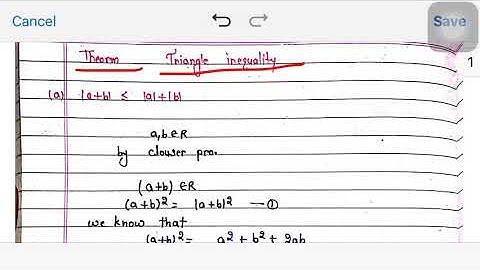 Cancel
Save
Theorm Triangle inequality
1
(a) |a+b| ≤ |a|+|b|
a,b ∈ R
by clouser pro.
(a+b) ∈ R
(a+b)² = |a+b|² — ①
we know that
(a+b)² = a² + b² + 2ab